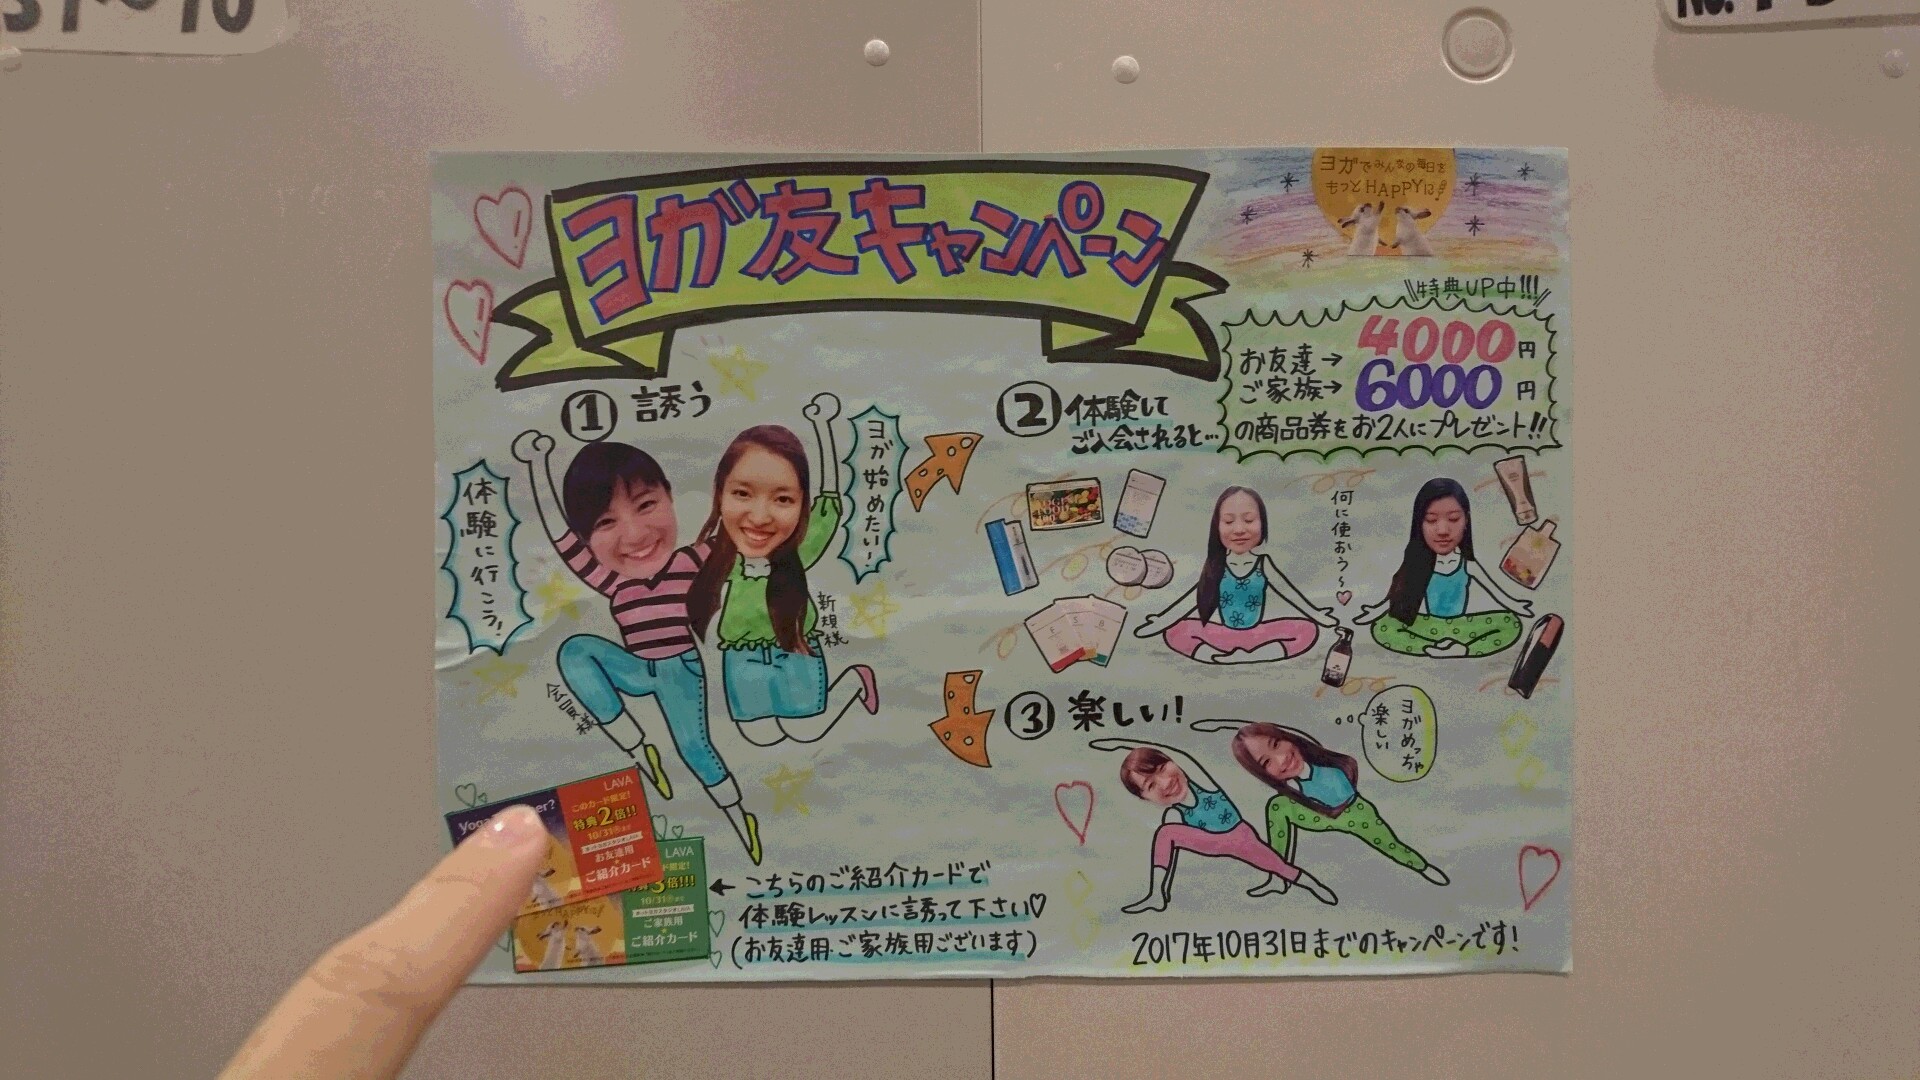 31〜70
No.
ヨガ友キャンペーン
ヨガでみんなの毎日を
もっとHAPPYに!
特典UP中!!!
お友達→ 4000円
ご家族→ 6000円
の商品券をお2人にプレゼント!!
① 誘う
体験に行こう!
ヨガ始めたい!
会員様
新規様
② 体験して
ご入会されると…
何に使おう〜♥
③ 楽しい!
ヨガめっちゃ
楽しい
LAVA
このカード限定!
特典2倍!!
10/31
お友達用
ご紹介カード
LAVA
ド限定!
3倍!!!
10/31
ご家族用
ご紹介カード
← こちらのご紹介カードで
体験レッスンに誘って下さい♡
(お友達用・ご家族用ございます)
2017年10月31日までのキャンペーンです!